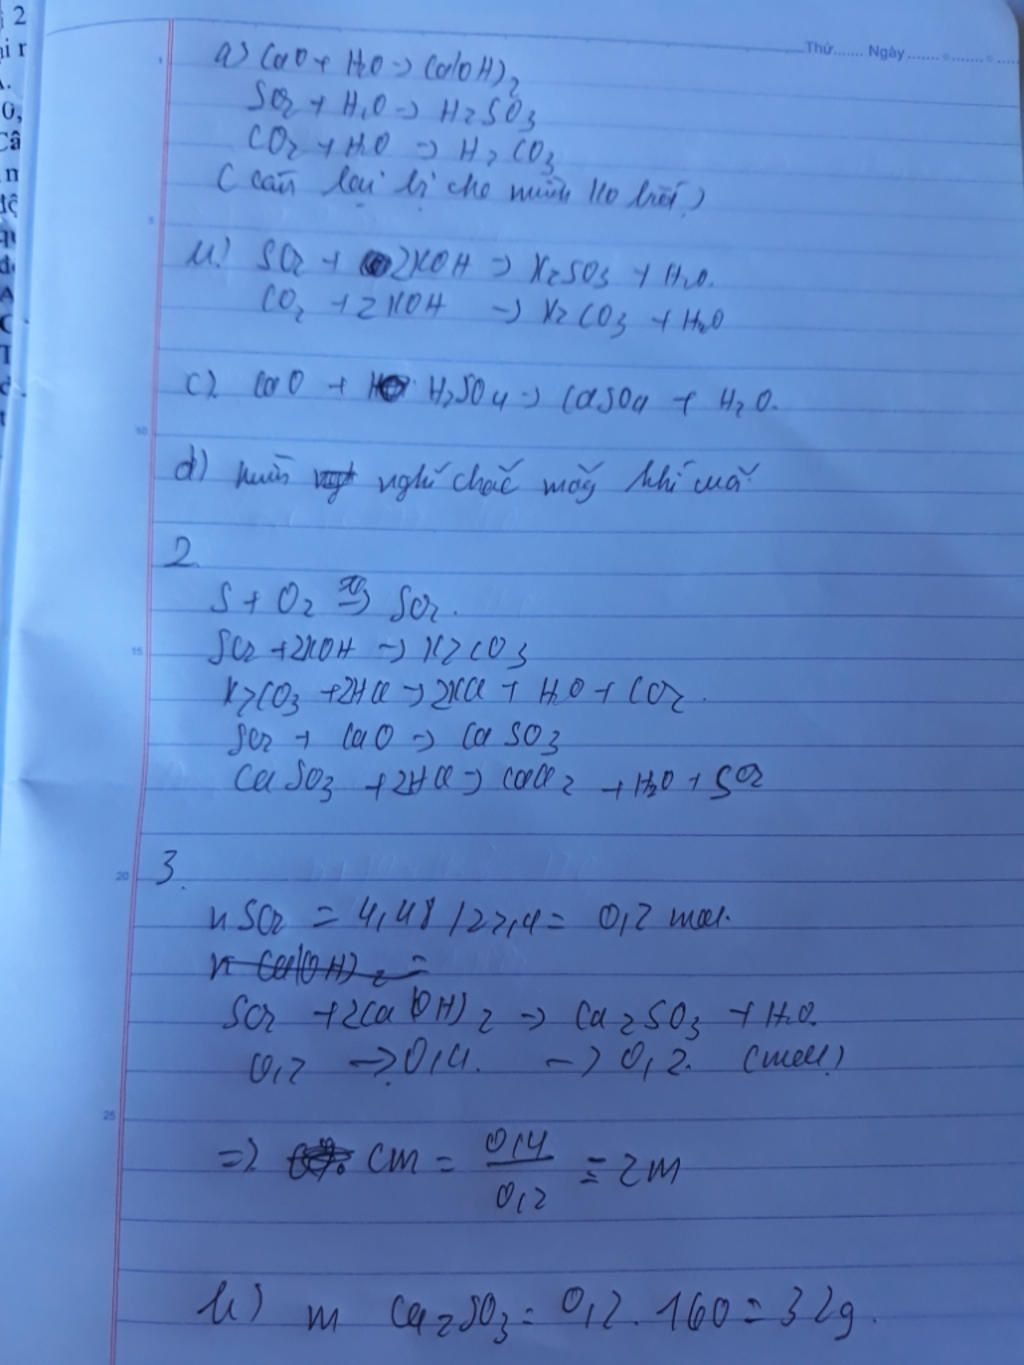 Thứ...... Ngày ......
a) CaO + H2O -> Ca(OH)2
SO2 + H2O -> H2SO3
CO2 + H2O -> H2CO3
( cần lại bị cho mình ko biết)
b) SO2 + 2KOH -> K2SO3 + H2O.
CO2 + 2KOH -> K2CO3 + H2O
c) CaO + H2SO4 -> CaSO4 + H2O.
d) mình nghĩ chắc mấy khí
2.
S + O2 -> SO2.
SO2 + 2KOH -> K2CO3
K2CO3 + 2HCl -> 2KCl + H2O + CO2.
SO2 + CaO -> CaSO3
CaSO3 + 2HCl -> CaCl2 + H2O + SO2
3.
nSO2 = 4,48 / 22,4 = 0,2 mol.
n Ca(OH)2 =
SO2 + 2Ca(OH)2 -> Ca2SO3 + H2O.
0,2 -> 0,4. -> 0,2. (mol)
=> CM = 0,4 / 0,2 = 2M
b) m Ca2SO3 = 0,2 . 160 = 32g.
5
10
15
20
25